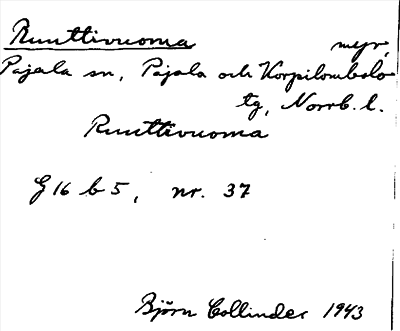 Ruuttivuoma myr,
Pajala sn, Pajala och Korpilombolo
tg, Norrb. l.
Ruuttivuoma
G 16 b 5, nr. 37
Björn Collinder 1943